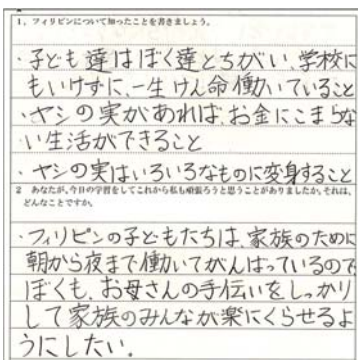 1, フィリピンについて知ったことを書きましょう。
・子ども達はぼく達とちがい、学校に
もいけずに、一生けん命働いていること
・ヤシの実があれば、お金にこまらな
い生活ができること
・ヤシの実はいろいろなものに変身すること
2 あなたが、今日の学習をしてこれから私も頑張ろうと思うことがありましたか。それは、
どんなことですか。
・フィリピンの子どもたちは、家族のために
朝から夜まで働いてがんばっているので
ぼくも、お母さんの手伝いをしっかり
して家族のみんなが楽にくらせるよ
うにしたい。